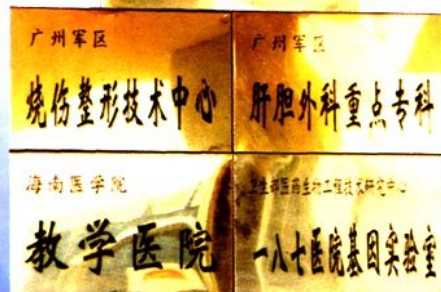 广州军区
烧伤整形技术中心
广州军区
肝胆外科重点专科
海南医学院
教学医院
卫生部医药生物工程技术研究中心
一八七医院基因实验室